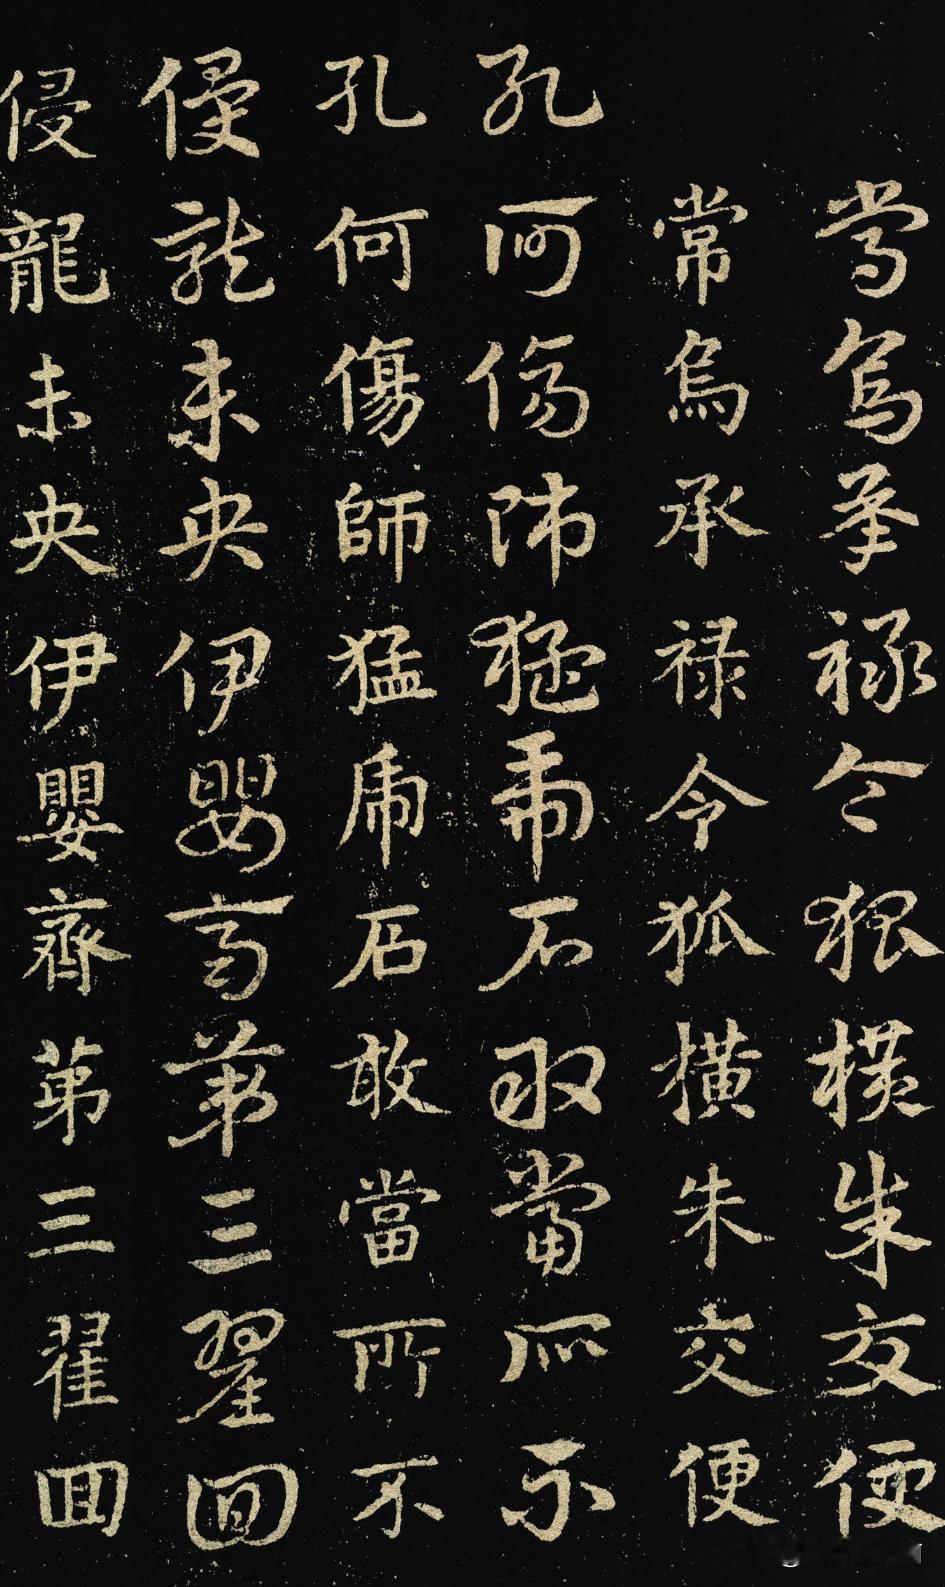 常烏承祿令狐橫朱交便
常烏承祿令狐橫朱交便
孔何傷師猛虎石敢當所不
孔何傷師猛虎石敢當所不
侵龍未央伊嬰齊第三翟回
侵龍未央伊嬰齊第三翟回